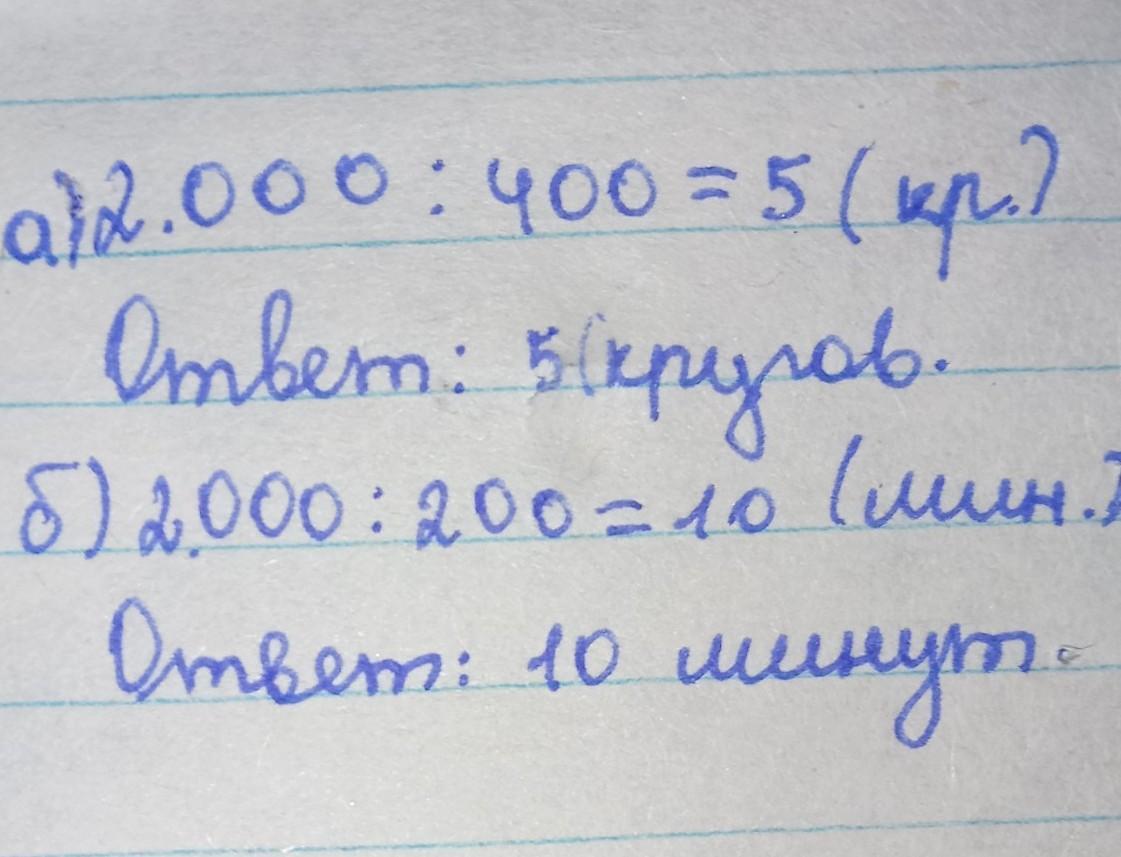 а) 2.000 : 400 = 5 ( кр.)
Ответ: 5 (кругов.
б) 2.000 : 200 = 10 (мин.)
Ответ: 10 минут.